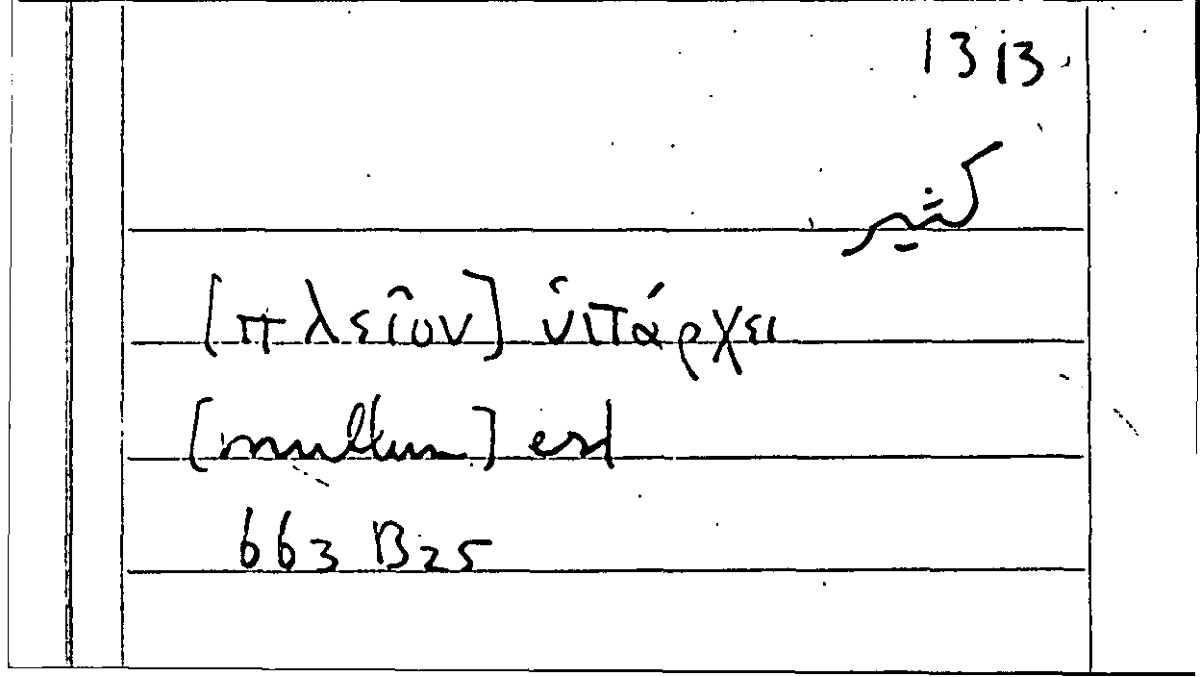 1313
كثير
[πλεῖον] ὑπάρχει
[multum] est
663 B25